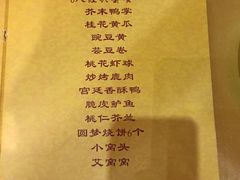 芥末鸭掌
桂花黄瓜
豌豆黄
芸豆卷
桃花虾球
炒烤鹿肉
宫廷香酥鸭
脆皮鲈鱼
桃仁芥兰
圆梦烧饼6个
小窝头
艾窝窝